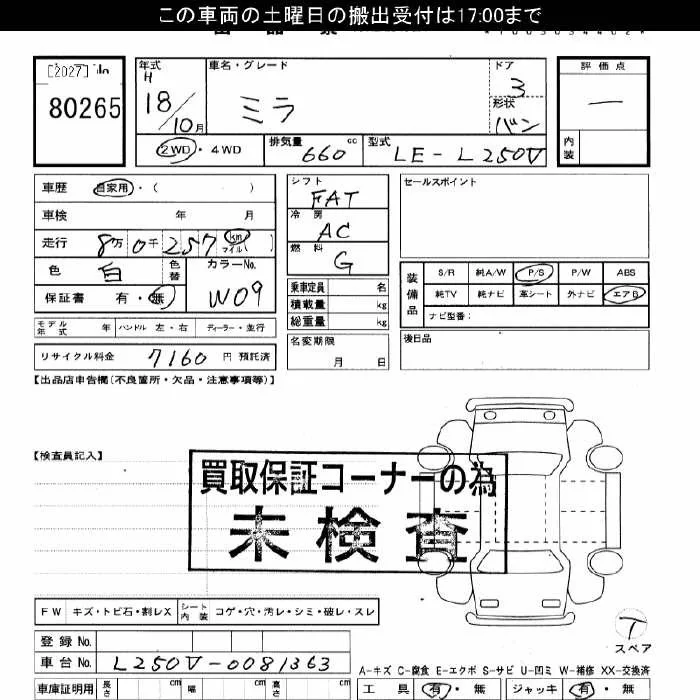 この車両の土曜日の搬出受付は17:00まで
[2027] No
80265
年式 車名・グレード ドア 評価点
H 18/10月 ミラ 3 —
形状 バン
内装
2WD・4WD 排気量 660 cc 型式 LE-L250V
車歴 自家用・( )
車検 年 月
走行 8万0千257 km マイル( )
色 白 色替 カラーNo. W09
保証書 有・無
モデル年式 年 ハンドル 左・右 ディーラー・並行
リサイクル料金 7160 円 預託済
シフト FAT
冷房 AC
燃料 G
乗車定員 名
積載量 kg
総重量 kg
名変期限
月 日
セールスポイント
装備品
S/R 純A/W P/S P/W ABS
純TV 純ナビ 革シート 外ナビ エアB
ナビ型番:
後日品
【出品店申告欄(不良箇所・欠品・注意事項等)】
【検査員記入】
買取保証コーナーの為
未検査
FW キズ・トビ石・割レX シート内装 コゲ・穴・汚レ・シミ・破レ・スレ
登録No.
車台No. L250V-0081363
車庫証明用 長さ cm 幅 cm 高さ cm
T
スペア
A-キズ C-腐食 E-エクボ S-サビ U-凹ミ W-補修 XX-交換済
工具 有・無 ジャッキ 有・無